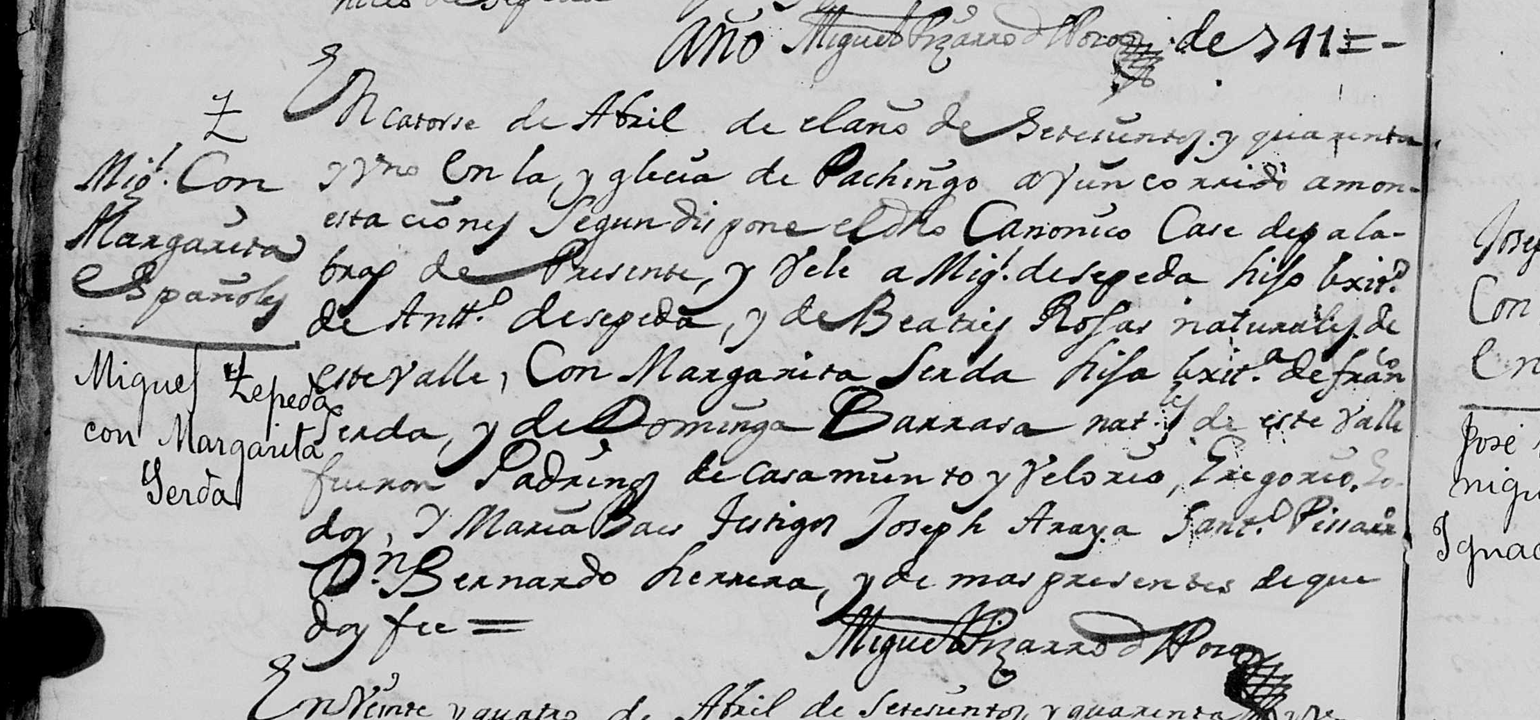 año Miguel Pizarro d de 741=-
Mig.l Con
Margarita
Españoles
Miguel Zepeda
con Margarita
Serda
En catorse de Abril de el año de Setesientos y quarenta
y vno En la, yglecia de Pachingo avⁱendo corrido amon-
estaciones Segun dispone el dro Canonico Case de pala-
bras de Presente, y Vele a Mig.l de sepeda hijo lexit.o
de Antt.o de sepeda, y de Beatris Rojas naturales de
este valle, Con Margarita Serda hija lexit.a de fran.co
Serda, y de Dominga Barrasa nat.les de este Valle
fueron Padrinos de casamiento y Velorio, Gregorio Go-
doy, Y Maria Baes testigos Joseph Araya Sant.o Pissarro
D.n Bernardo herrera, y de mas presentes de que
doy fee =
Miguel Pizarro d
En Veinte y quatro de Abril de Setesientos, y quarenta y Vno
Josep
Con
En
José
niqu
Ignac